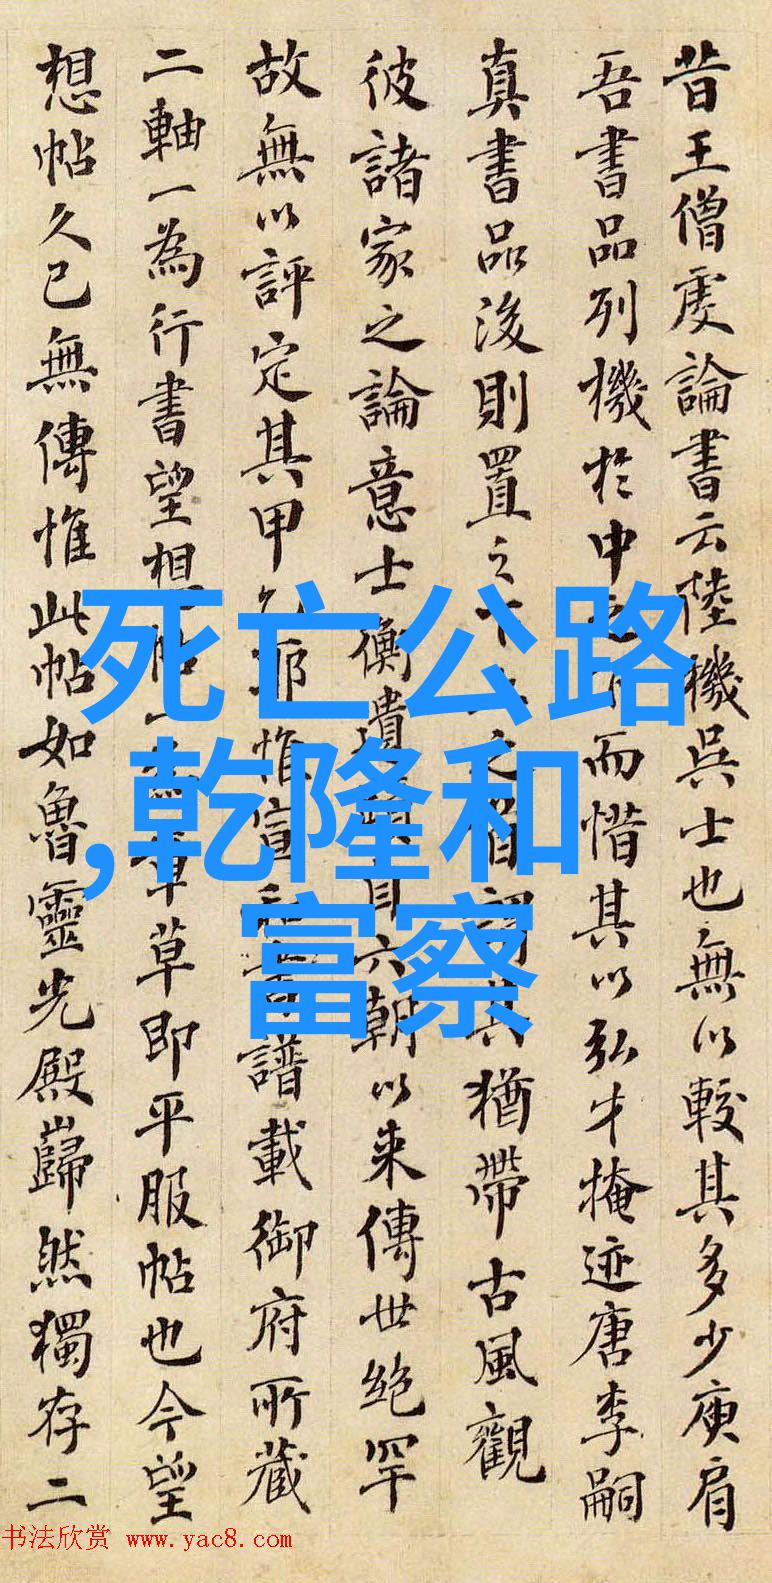 昔王僧虔論書云陸機吳士也無以較其多少庾肩
吾書品列機於中之下而惜其以弘才掩迹唐李嗣
真書品後則置之下上之首謂其猶帶古風觀
彼諸家之論意士衡遺自六朝以来傳世絶罕
故無以評定其甲乙耶惟宣和書譜載御府所藏
二軸一為行書望想帖一為章草即平服帖也今望
想帖久已無傳惟此帖如魯靈光殿巋然獨存二
死亡公路
,乾隆和
富察
书法欣赏 www.yac8.com